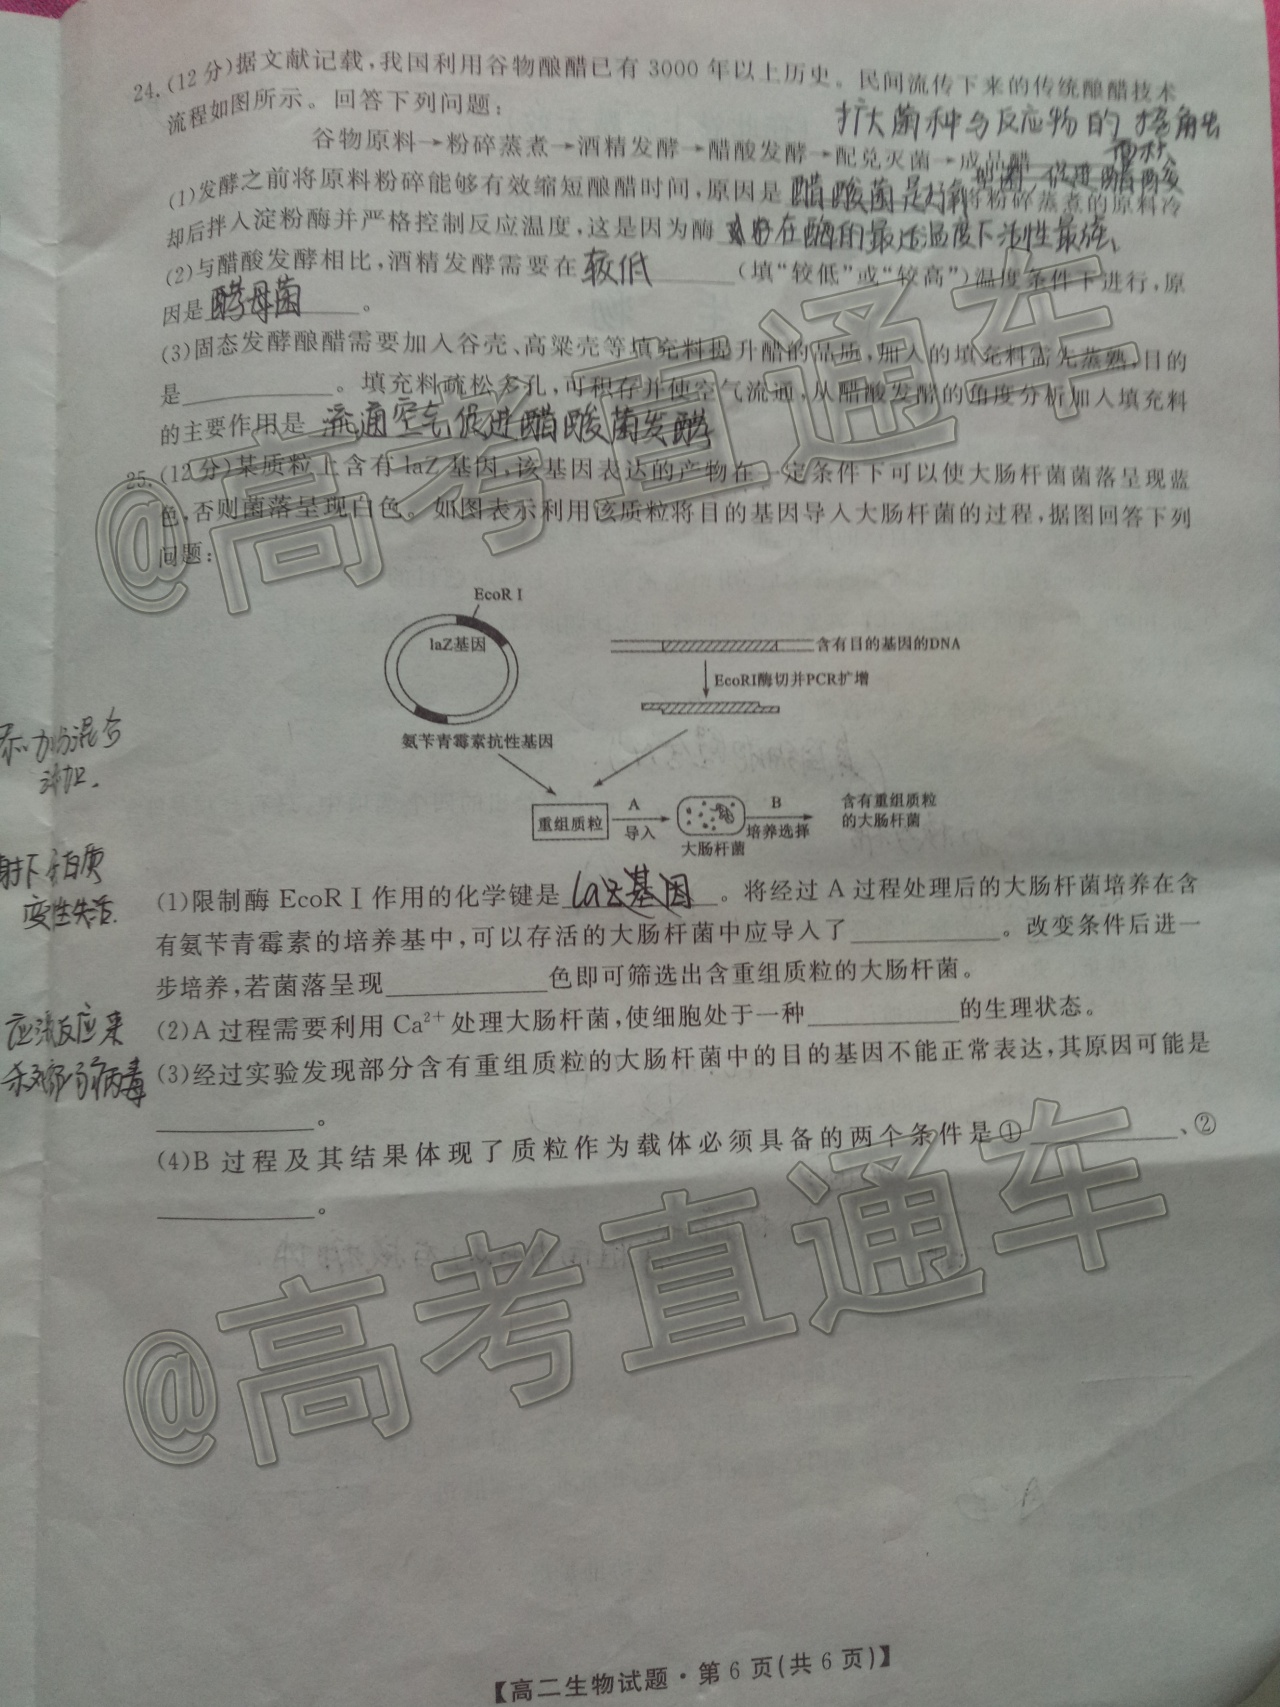 24.(12分)据文献记载,我国利用谷物酿醋已有3000年以上历史。民间流传下来的传统酿醋技术
流程如图所示。回答下列问题:
扩大菌种与反应物的接触
谷物原料→粉碎蒸煮→酒精发酵→醋酸发酵→配兑灭菌→成品醋
(1)发酵之前将原料粉碎能够有效缩短酿醋时间,原因是 醋酸菌是好氧 将粉碎蒸煮的原料冷
却后拌入淀粉酶并严格控制反应温度,这是因为酶 在酶的最适温度下活性最强
(2)与醋酸发酵相比,酒精发酵需要在 较低 (填“较低”或“较高”)温度条件下进行,原
因是 酵母菌 。
(3)固态发酵酿醋需要加入谷壳、高粱壳等填充料提升醋的品质,加入的填充料需先蒸熟,目的
是 。填充料疏松多孔,可积存并使空气流通,从醋酸发酵的角度分析加入填充料
的主要作用是 流通空气促进醋酸菌发酵
25.(12分)某质粒上含有laZ基因,该基因表达的产物在一定条件下可以使大肠杆菌菌落呈现蓝
色,否则菌落呈现白色。如图表示利用该质粒将目的基因导入大肠杆菌的过程,据图回答下列
问题:
EcoR I
laZ基因
含有目的基因的DNA
EcoRI酶切并PCR扩增
氨苄青霉素抗性基因
重组质粒
A
导入
大肠杆菌
B
培养选择
含有重组质粒
的大肠杆菌
变性失活.
(1)限制酶EcoR I 作用的化学键是 laZ基因 。将经过A过程处理后的大肠杆菌培养在含
有氨苄青霉素的培养基中,可以存活的大肠杆菌中应导入了 。改变条件后进一
步培养,若菌落呈现 色即可筛选出含重组质粒的大肠杆菌。
(2)A过程需要利用Ca²⁺处理大肠杆菌,使细胞处于一种 的生理状态。
(3)经过实验发现部分含有重组质粒的大肠杆菌中的目的基因不能正常表达,其原因可能是
。
(4)B过程及其结果体现了质粒作为载体必须具备的两个条件是① 、②
。
@高考直通车
@高考直通车
【高二生物试题·第6页(共6页)】